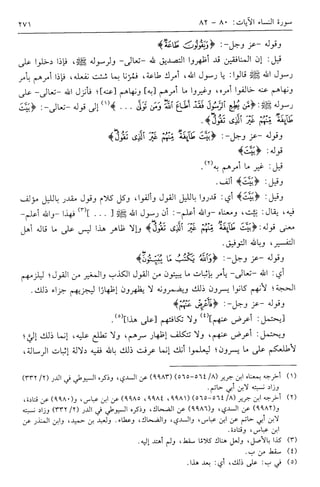 سورة النساء الآيات: ٨٠ - ٨٢
٢٧١
وقوله -عز وجل-: ﴿وَيَقُولُونَ طَاعَةٌ﴾
قيل: إن المنافقين قد أظهروا التصديق لله -تعالى- ولرسوله ﷺ، فإذا دخلوا على
رسول الله ﷺ قالوا: يا رسول الله، أمرك طاعة، فمرنا بما شئت نفعله، فإذا أمرهم بأمر
ونهاهم عنه خالفوا أمره، وغيروا ما أمرهم [به] ونهاهم [عنه]؛ فأنزل الله -تعالى- على
رسوله ﷺ: ﴿مَّن يُطِعِ ٱلرَّسُولَ فَقَدْ أَطَاعَ ٱللَّهَ وَمَن تَوَلَّىٰ . . . ﴾(١) إلى قوله -تعالى-: ﴿بَيَّتَ
طَآئِفَةٌ مِّنْهُمْ غَيْرَ ٱلَّذِى تَقُولُ﴾.
وقوله -عز وجل-: ﴿بَيَّتَ طَآئِفَةٌ مِّنْهُمْ غَيْرَ ٱلَّذِى تَقُولُ﴾
قوله: ﴿بَيَّتَ﴾
قيل: غير ما أمرهم به(٢).
وقيل: ﴿بَيَّتَ﴾ ألف.
وقيل: ﴿بَيَّتَ﴾ أي: قدروا بالليل القول وألفوا، وكل كلام وقول مقدر بالليل مؤلف
فيه، يقال: بيّت، ومعناه -والله أعلم-: أن رسول الله ﷺ [ . . . ](٣) فهذا -والله أعلم-
معنى قوله: ﴿بَيَّتَ طَآئِفَةٌ مِّنْهُمْ غَيْرَ ٱلَّذِى تَقُولُ﴾ وإلا ظاهر هذا ليس على ما قاله أهل
التفسير، وبالله التوفيق.
وقوله -عز وجل-: ﴿وَٱللَّهُ يَكْتُبُ مَا يُبَيِّتُونَ﴾
أي: الله -تعالى- يأمر بإثبات ما يبيتون من القول الكذب والمغير من القول؛ ليلزمهم
الحجة؛ لأنهم كانوا يسرون ذلك ويضمرونه لا يظهرون إظهارًا ليجزيهم جزاء ذلك.
وقوله -عز وجل-: ﴿فَأَعْرِضْ عَنْهُمْ﴾
[يحتمل: أعرض عنهم](٤) ولا تكافئهم [على هذا](٥).
ويحتمل: أعرض عنهم، ولا تتكلف إظهار سرهم، ولا تطلع عليه، إنما ذلك إليّ؛
لأطلعكم على ما يسرون؛ ليعلموا أنك إنما عرفت ذلك بالله ففيه دلالة إثبات الرسالة،
(١) أخرجه بمعناه ابن جرير (٥٦٤/٨-٥٦٥) (٩٩٨٣) عن السدي، وذكره السيوطي في الدر (٣٣٢/٢)
وزاد نسبته لابن أبي حاتم.
(٢) أخرجه ابن جرير (٥٦٤/٨-٥٦٥) (٩٩٨١، ٩٩٨٤، ٩٩٨٥) عن ابن عباس، و(٩٩٨٠) عن قتادة،
و(٩٩٨٢) عن السدي، و(٩٩٨٦) عن الضحاك، وذكره السيوطي في الدر (٣٣٢/٢) وزاد نسبته
لابن أبي حاتم عن ابن عباس، والسدي، والضحاك، وعطاء. ولعبد بن حميد، وابن المنذر عن
ابن عباس، وقتادة.
(٣) كذا بالأصل، ولعل هناك كلامًا سقط، ولم أهتد إليه.
(٤) سقط من ب.
(٥) في ب: على ذلك، أي: بعد هذا.